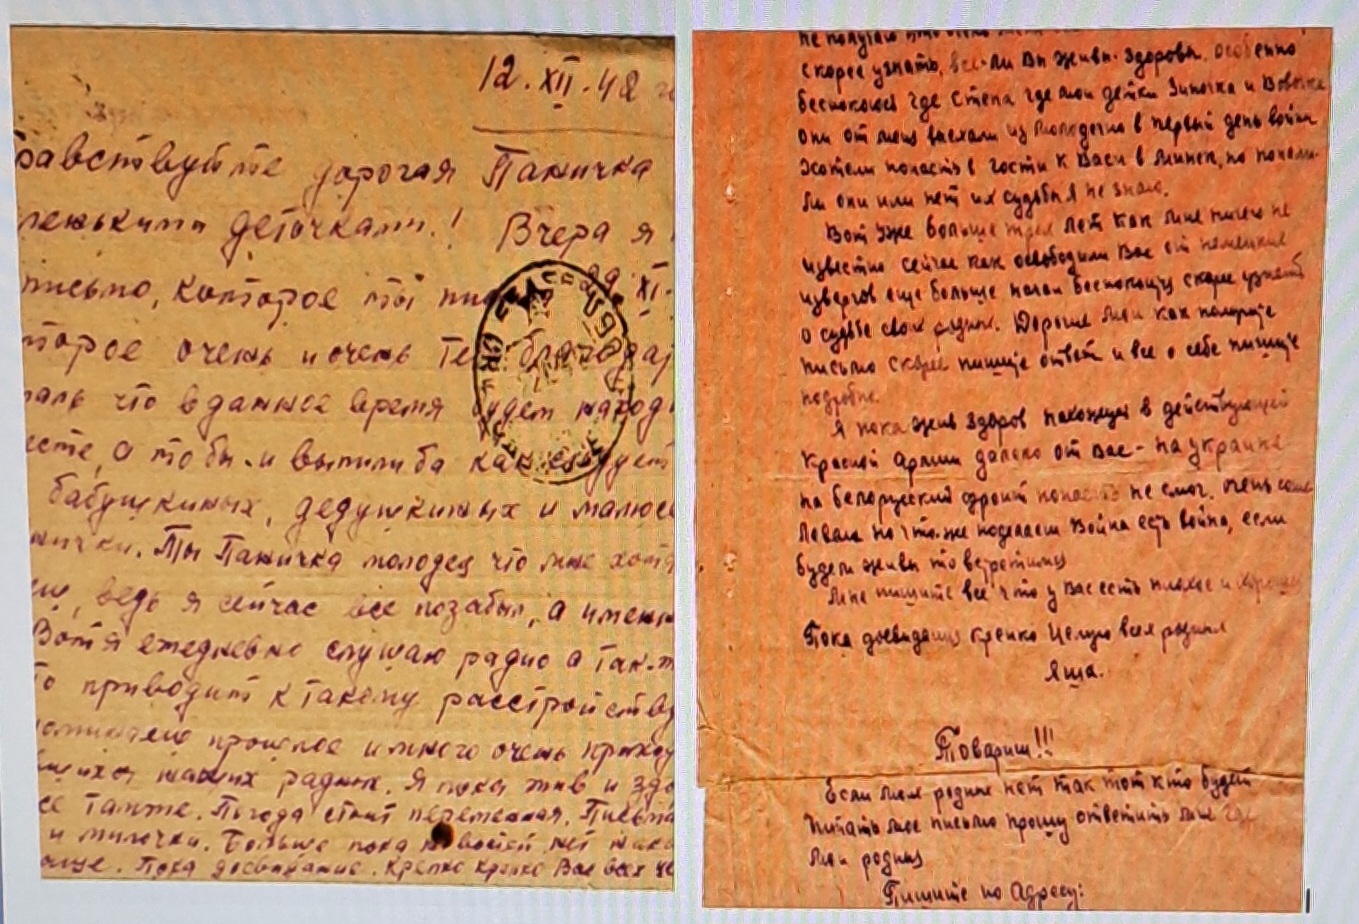 12.XII.42 г
равствуйте дорогая Паничка
ленькими деточками! Вчера я
письмо, которое ты XI.
торое очень и очень благода
что в данное время будем наход
есте, а то бы и выпили ба как следует
бабушкиных, дедушкиных и малюсе
нички. Ты Паничка молодец что мне хотя
еш, ведь я сейчас все позабыл, а имен
Вот я ежедневно слушаю радио а так-ж
то приводит к такому расстройству
прошлое и много очень приход
наших родных. Я пока жив и здо
се также. Погода стоит переменная. Письма
и милочки. Больше пока новостей нет
още. Пока досвидание. Крепко крепко Вас всех це
не получаю
скорее узнать, все-ли Вы живы-здоровы. Особенно
беспокоюсь где Степа где мои детки Зиночка и Вовочка
они от меня выехали из Молодечно в первый день войны
Хотели попасть в гости к Васи в Минск, но попали
ли они или нет их судьбы я не знаю.
Вот уже больше трех лет как мне ничего не
известно сейчас как освободили Вас от немецких
извергов еще больше начал беспокоится скорее узнать
о судьбе своих родных. Дорогие мои как получите
письмо скорее пишите ответ и все о себе пишите
подробно.
Я пока жив здоров нахожусь в действующей
Красной Армии далеко от Вас - на Украине
на белорусский фронт попасть не смог. очень сож
ловал но что-же поделаеш Война есть война, если
будем живы то встретимся
Мне пишите все что у Вас есть плохое и хорошее
Пока досвидания крепко Целую всех родных
Яша.
Товарищ!!!
Если моих родных нет так тот кто будет
читать мое письмо прошу ответить мне где
мои родные
Пишите по Адресу: